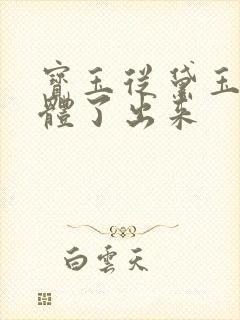 寶玉從黛玉
體了出来
白雲天